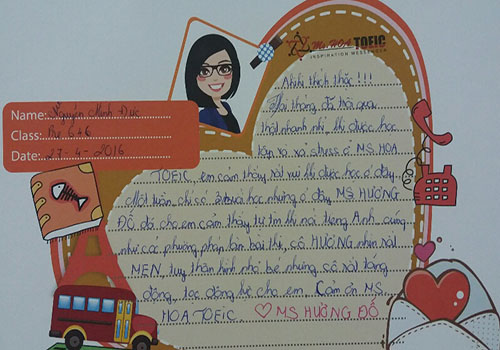 Ms.HOA TOEIC
INSPIRATION MESSENGER
Name: Nguyễn Minh Đức
Class: Pre 676
Date: 27-4-2016
thích thật !!!
tháng đã trôi qua
thật nhanh nhỉ khi được học
tập và xả stress ở MS HOA
TOEIC, em cảm thấy rất vui khi được học ở đây.
Một tuần chỉ có 3 buổi học nhưng ở đây MS HƯƠNG
ĐỖ đã cho em cảm thấy tự tin khi nói tiếng Anh, cũng
như các phương pháp làm bài thi, cô HƯƠNG nhìn rất
MEN, tuy thân hình nhỏ bé nhưng cô rất năng
động, tác động hết cho em. Cảm ơn MS
HOA TOEIC. ♡ MS HƯƠNG ĐỖ